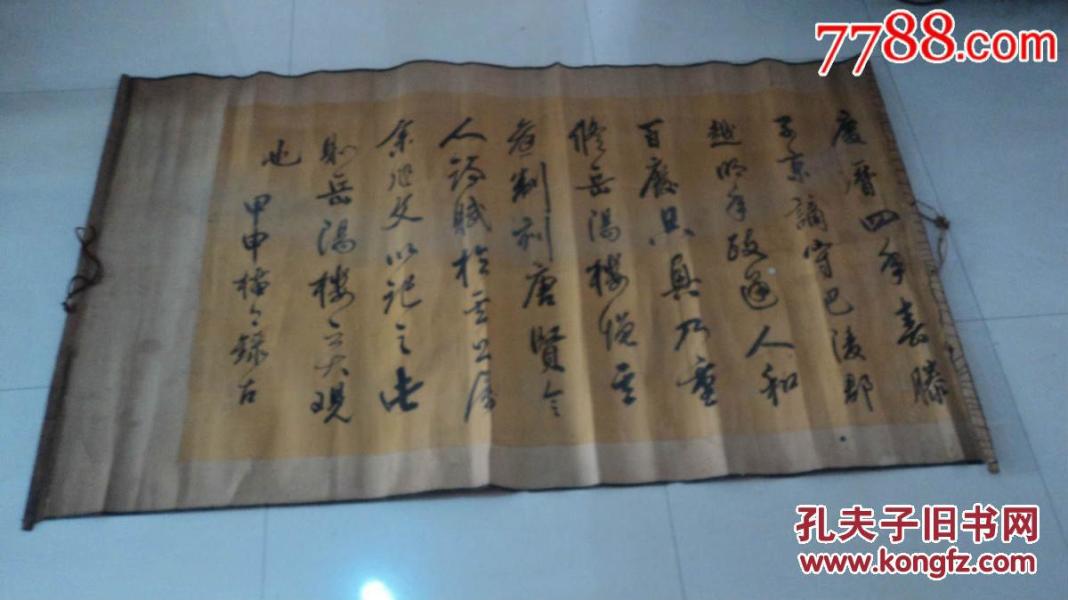 7788.com
慶曆四年春滕
子京謫守巴陵郡
越明年政通人和
百廢具興乃重
修岳陽樓增其
舊制刻唐賢今
人詩賦於其上屬
余作文以記之此
則岳陽樓之大觀
也
甲申錄古
孔夫子旧书网
www.kongfz.com